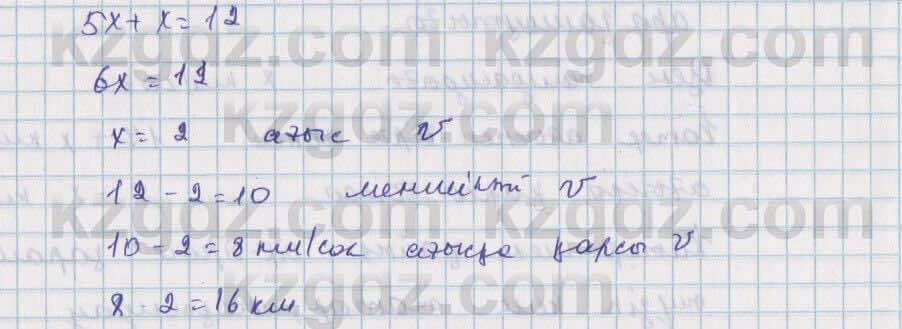 5x + x = 12
6x = 12
x = 2 ағыс v
12 - 2 = 10 меншікті v
10 - 2 = 8 км/сағ ағысқа қарсы v
8 · 2 = 16 км
kzgdz.com kzgdz.com
kzgdz.com
kzgdz.com kzgdz.com
kzgdz.com